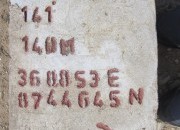 141
140M
368853E
0744645N